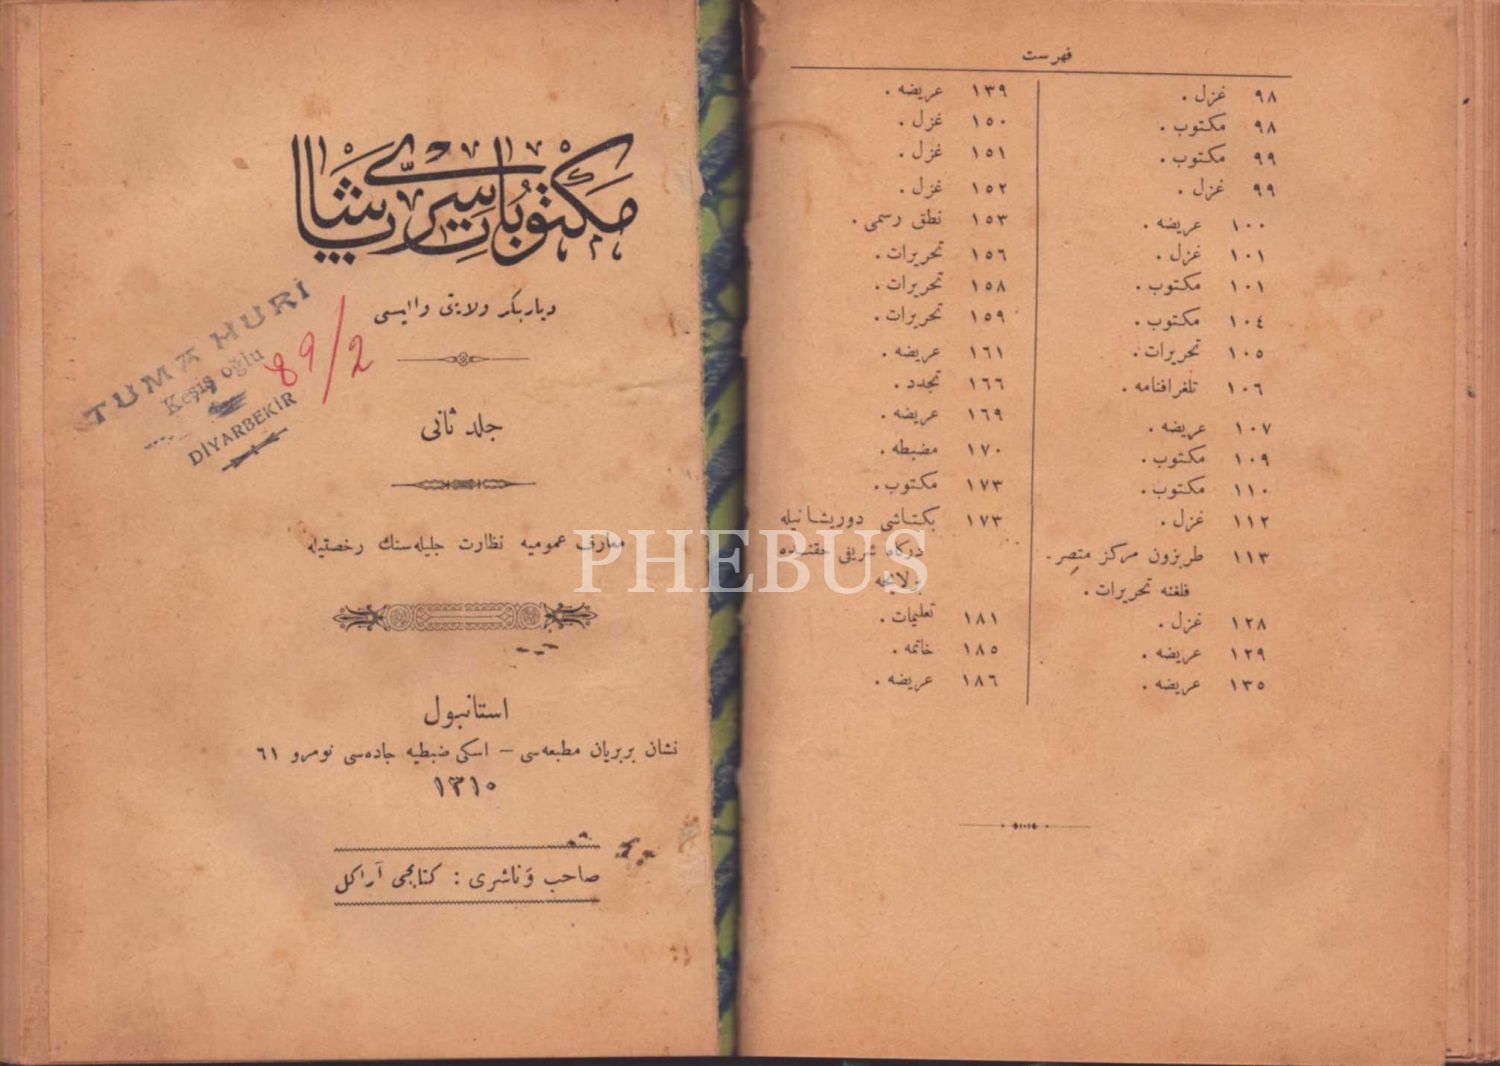 مكتوبات سرّی پاشا
دیاربكر ولایتی والیسی
TUMA HURİ
Keşiş oğlu
DİYARBEKİR
89/2
جلد ثانی
معارف عمومیه نظارت جلیله‌سنك رخصتیله
استانبول
نشان بربریان مطبعه‌سی – اسكی ضبطیه جاده‌سی نومرو ٦١
١٣١٠
صاحب و ناشری : كتابجی آراكل
PHEBUS
فهرست
٩٨ غزل .
٩٨ مكتوب .
٩٩ مكتوب .
٩٩ غزل .
١٠٠ عریضه .
١٠١ غزل .
١٠١ مكتوب .
١٠٤ مكتوب .
١٠٥ تحریرات .
١٠٦ تلغرافنامه .
١٠٧ عریضه .
١٠٩ مكتوب .
١١٠ مكتوب .
١١٢ غزل .
١١٣ طربزون مركز متصر.
فلغنه تحریرات .
١٢٨ غزل .
١٢٩ عریضه .
١٣٥ عریضه .
١٣٩ عریضه .
١٥٠ غزل .
١٥١ غزل .
١٥٢ غزل .
١٥٣ نطق رسمی .
١٥٦ تحریرات .
١٥٨ تحریرات .
١٥٩ تحریرات .
١٦١ عریضه .
١٦٦ تجدد .
١٦٩ عریضه .
١٧٠ مضبطه .
١٧٣ مكتوب .
١٧٣ بكتاشی دوریشانیله
دركاه شریفی حقنده
بر لایحه
١٨١ تعلیمات .
١٨٥ خاتمه .
١٨٦ عریضه .